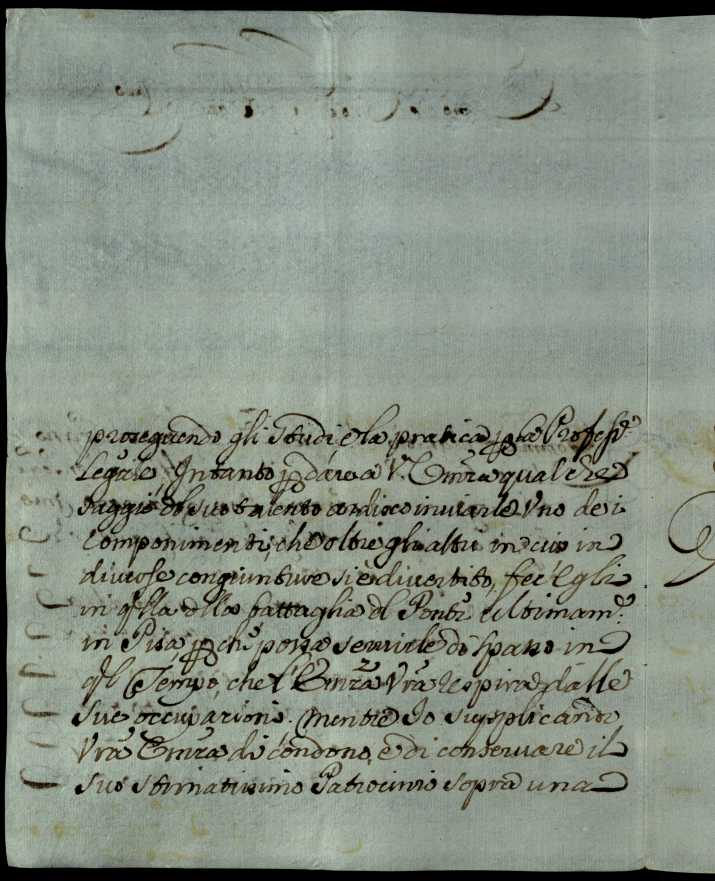 proseguendo gli Studi e la pratica p la Profess.e
Legale. Intanto p dare a V. Emza qualche
saggio del suo talento ardisco inviarle Uno dei
Componimenti, che oltre gli altri in cui in
diverse congiunture si è divertito, fec'Egli
in qlla dlla battaglia dl Ponte ultimam.e
in Pisa p chè possa servirle di spasso in
ql Tempo, che l'Emza Vra respira dalle
sue occupazioni. Mentre Io supplicando
Vra Emza di condono, e di conservare il
suo stimatissimo Patrocinio sopra una